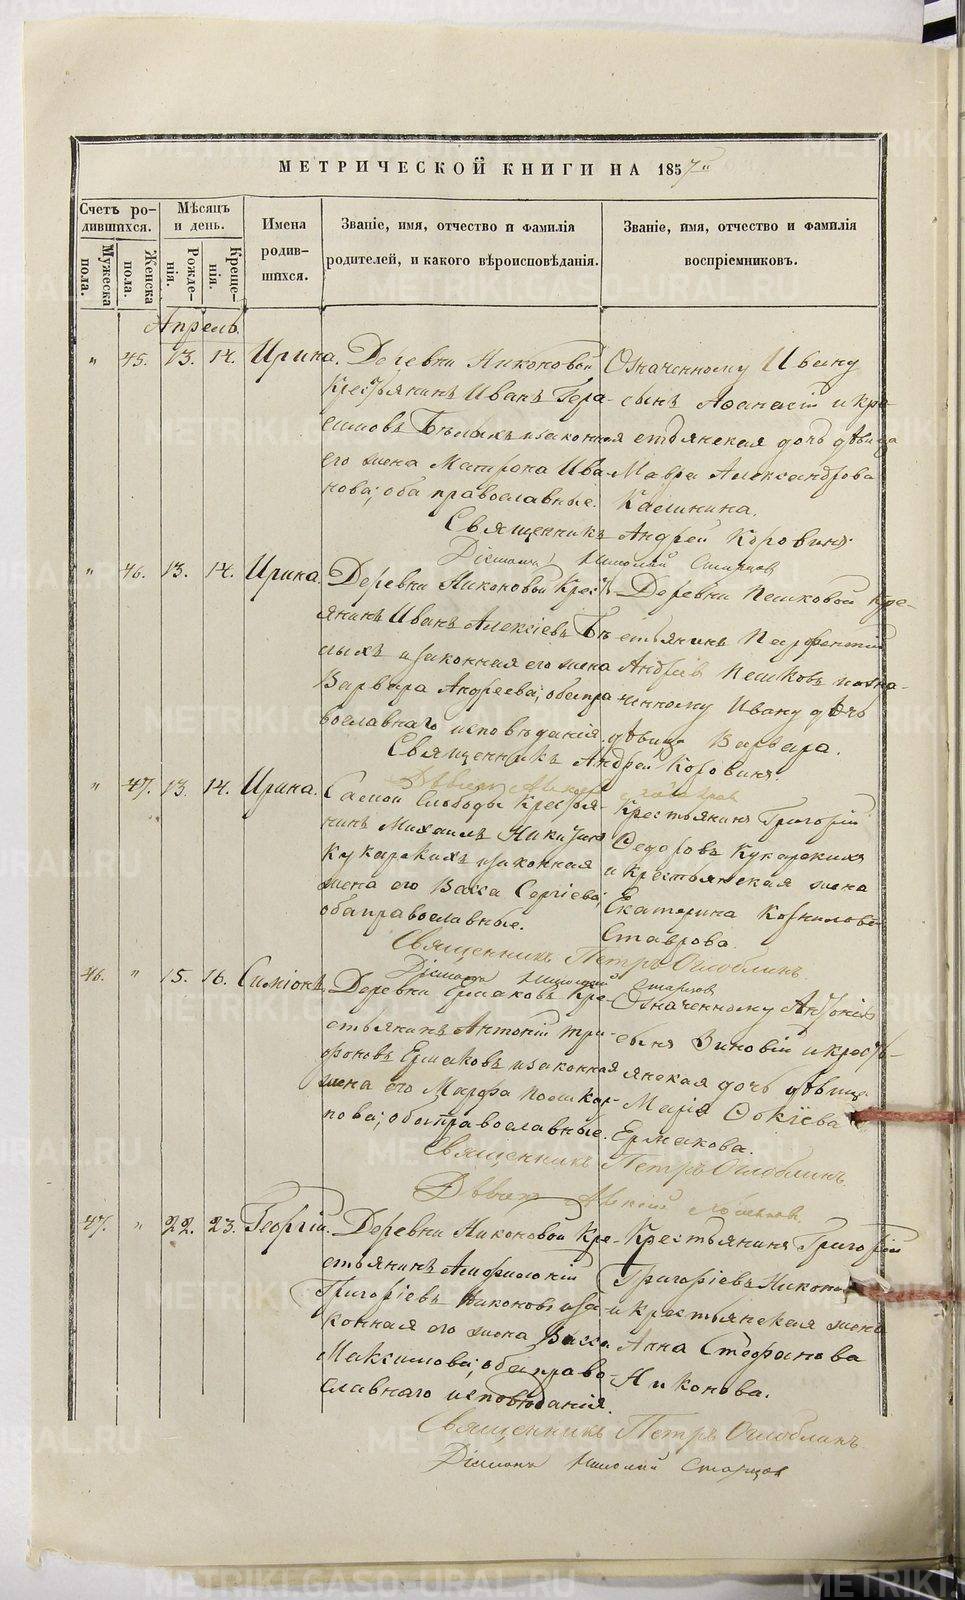 МЕТРИЧЕСКОЙ КНИГИ НА 1857й
Счетъ родившихся.
Мѣсяцъ и день.
Имена родившихся.
Званіе, имя, отчество и фамилія родителей, и какого вѣроисповѣданія.
Званіе, имя, отчество и фамилія воспріемниковъ.
Мужеска пола.
Женска пола.
Рожденія.
Крещенія.
Апрель.
" 45. 13. 14. Ирина.
Деревни Никоновой
Крестьянинъ Иванъ Гера-
симовъ Бѣлыхъ и законная
его жена Матрона Ива-
нова; оба православные.
Означенному Ивану
сынъ Афанасій и кре-
стьянская дочь дѣвица
Мавра Александрова
Калинина.
Священникъ Андрей Коровинъ.
Діаконъ Николай Старцов
" 46. 13. 14. Ирина.
Деревни Никоновой Крест-
янинъ Иванъ Алексіевъ Бѣ-
лыхъ и законная его жена
Варвара Андреева; оба пра-
вославнаго исповѣданія.
Деревни Пешковой Кре-
стьянинъ Парфентій
Андреев Пешковъ и озна-
ченному Ивану дочь
дѣвица Варвара.
Священникъ Андрей Коровинъ.
" 47. 13. 14. Ирина.
Самой Слободы Крестья-
нинъ Михаилъ Никитинъ
Кукарскихъ и законная
жена его Васса Сергіева;
оба православные.
Крестьянинъ Григорій
Федоровъ Кукарскихъ
и крестьянская жена
Екатерина Корнилова
Ставрова.
Священникъ Петръ Оглоблинъ.
Діаконъ Николай Старцов
46. " 15. 16. Симіонъ.
Деревни Ермаковъ Кре-
стьянинъ Антоній Три-
фоновъ Ермаковъ и законная
жена его Марфа Поликар-
пова; оба православные.
Означенному Антонію
сынъ Зиновій и крест-
янская дочь дѣвица
Марія Фокіева
Ермакова.
Священникъ Петръ Оглоблинъ.
47. " 22. 23. Георгій.
Деревни Никоновой Кре-
стьянинъ Амфилохій
Григоріевъ Никоновъ и за-
конная его жена Васса
Максимова; оба право-
славнаго исповѣданія.
Крестьянинъ Григорій
Григоріевъ Никонов
и крестьянская жена
Анна Стефанова
Никонова.
Священникъ Петръ Оглоблинъ.
Діаконъ Николай Старцов
METRIKI.GASO-URAL.RU